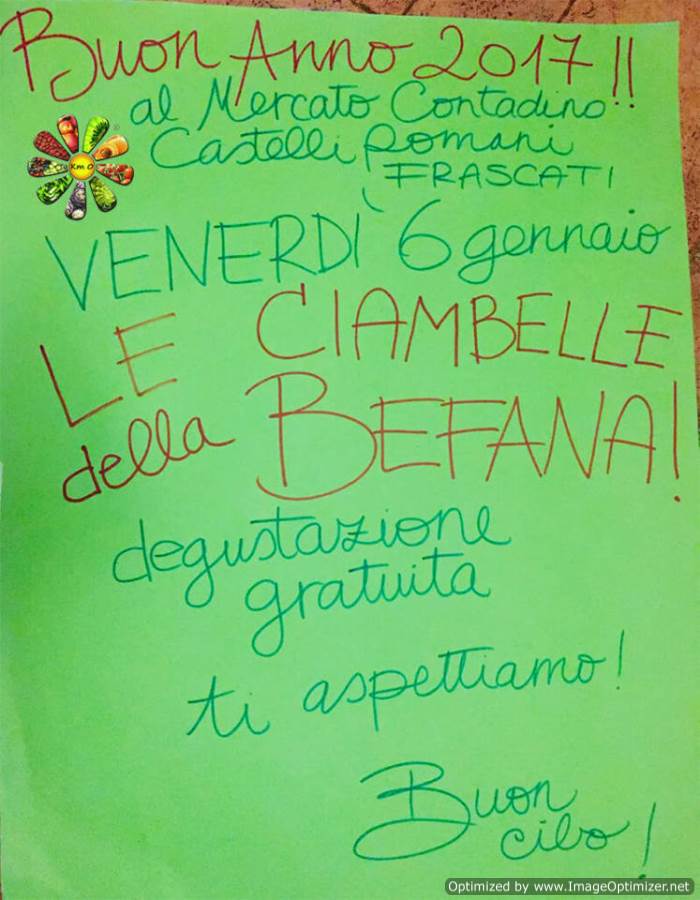 Buon Anno 2017!!
al Mercato Contadino
Castelli Romani
FRASCATI
Km 0
VENERDÌ 6 gennaio
LE CIAMBELLE
della BEFANA!
degustazione
gratuita
ti aspettiamo!
Buon
cibo!
Optimized by www.ImageOptimizer.net